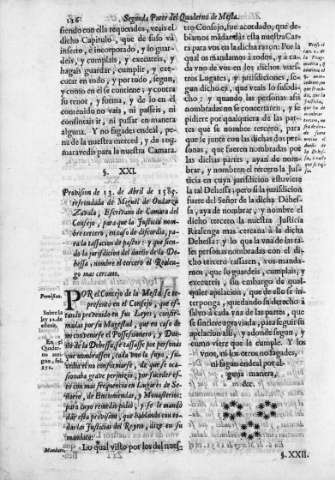 136 Segunda Parte del Quaderno de Mesta.
siendo con ella requeridos, veais el
dicho Capitulo, que de suso và
inserto, e incorporado, y lo guar-
deis, y cumplais, y executeis, y
hagais guardar, cumplir, y exe-
cutar en todo, y por todo, segun,
y como en el se contiene, y contra
su tenor, y forma, y de lo en el
contenido no vais, ni passeis, ni
consintais ir, ni passar en manera
alguna. Y no fagades endeal, pe-
na de la nuestra merced, y de diez
maravedis para la nuestra Camara.
§. XXI.
Provision de 13. de Abril de 1585.
refrendada de Miguel de Ondarza
Zavala, Escrivano de Camara del
Consejo, para que la Justicia nom-
bre tercero, en caso de discordia, pa-
ra la tassacion de pastos: y que sien-
do la jurisdicion del dueño de la De-
hessa, nombre el tercero el Realen-
go mas cercano.
Provision.
POR el Concejo de la Mesta se re-
presentò en el Consejo, que es-
tando
por sus Leyes, confir-
madas por su Magestad, que en caso de
no convenirse el Possessionero, y Due-
ño de la Dehessa, se tassasse por personas
que nombrassen, cada uno la suya, su-
cedia el no conformarse, de que se oca-
sionaba grave perjuizio, por suceder es-
to con mas frequencia en Lugares de Seño-
rio, de Encomiendas, y Monasterios:
para cuyo remedio pidiò, y se le mandò
dàr esta provision, que hablando con to-
das las Justicias del Reyno, dize en su
mandato assi:
Mandato.
Lo qual visto por los del nues-
tro Consejo, fue acordado, que de-
biamos mandar dàr esta nuestra Car-
ta para vos en la dicha razon: Por la
qual os mandamos à todos, y à ca-
da uno de vos en los dichos vues-
tros Lugares, y jurisdiciones, se-
gun dicho es, que veais lo susodi-
cho; y quando las personas assi
nombradas no se concertaren, y se
pidiere por qualquiera de las par-
tes que se nombre tercero, para
que se junte con las dichas dos per-
sonas, que fueron nombradas por
las dichas partes, ayais de nom-
brar, y nombreis el tercero la Jus-
ticia en cuya jurisdicion estuviere
la tal Dehessa; pero si la jurisdicion
fuere del Señor de la dicha Dehes-
sa, aya de nombrar, y nombre el
dicho tercero la nuestra Justicia
Realenga mas cercana à la dicha
Dehessa: y lo que la una de las ta-
les personas nombradas con el di-
cho tercero
lo guardeis, cumplais, y
executeis, sin embargo de qual-
quier apelacion, que de ello se in-
terponga, quedando su derecho à
salvo à cada una de las partes, que
se sintiere agraviada, para seguir su
apelacion alli, y adonde, segun, y
como viere que le cumple. Y los
unos, ni los otros no fagades,
ni fagan endeal por al-
guna manera,
&c.
§. XXII.